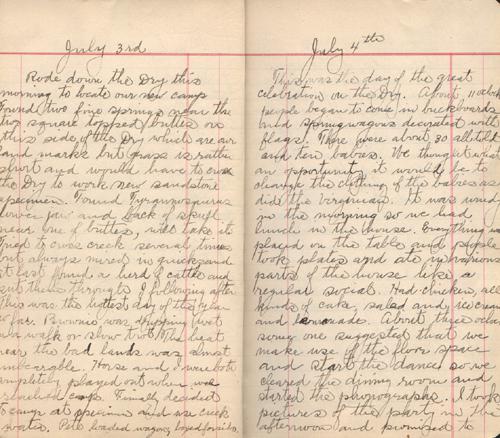 July 3rd
Rode down the Dry this
morning to locate our new camp
Found two fine springs near the
two square topped buttes on
this side of the Dry which are our
land marks but grass is rather
short and would have to cross
the Dry to work new sandstone
specimen. Found Tyrannosaurus
lower jaw and back of skull
near one of buttes, will take it
Tried to cross creek several times
but always mired in quicksand
at last found a herd of cattle and
sent them through I following after
This was the hottest day of the year
so far. Brownie was dripping just
on walk or slow trot. The heat
near the bad lands was almost
unbearable. Horse and I were both
completely played out when we
reached camp. Finally decided
to camp at specimen and use creek
water. Pete loaded wagon, boxed fossils.
July 4th
This was the day of the great
celebration on the Dry. About 11 oclock
people began to come in buckboards
and spring wagons decorated with
flags. There were about 30 all told
and ten babies. We thought what
an opportunity it would be to
change the clothing of the babies as
did the Virginian. It was windy
in the morning so we had
lunch in the house. Everything was
placed on the table and people
took plates and ate in various
parts of the house like a
regular social. Had chicken, all
kinds of cake, salad and ice cream
and lemonade. About three oclock
some one suggested that we
make use of the floor space
and start the dance so we
cleared the dining room and
started the phonograph. I took
pictures of the party in the
afternoon and promised to